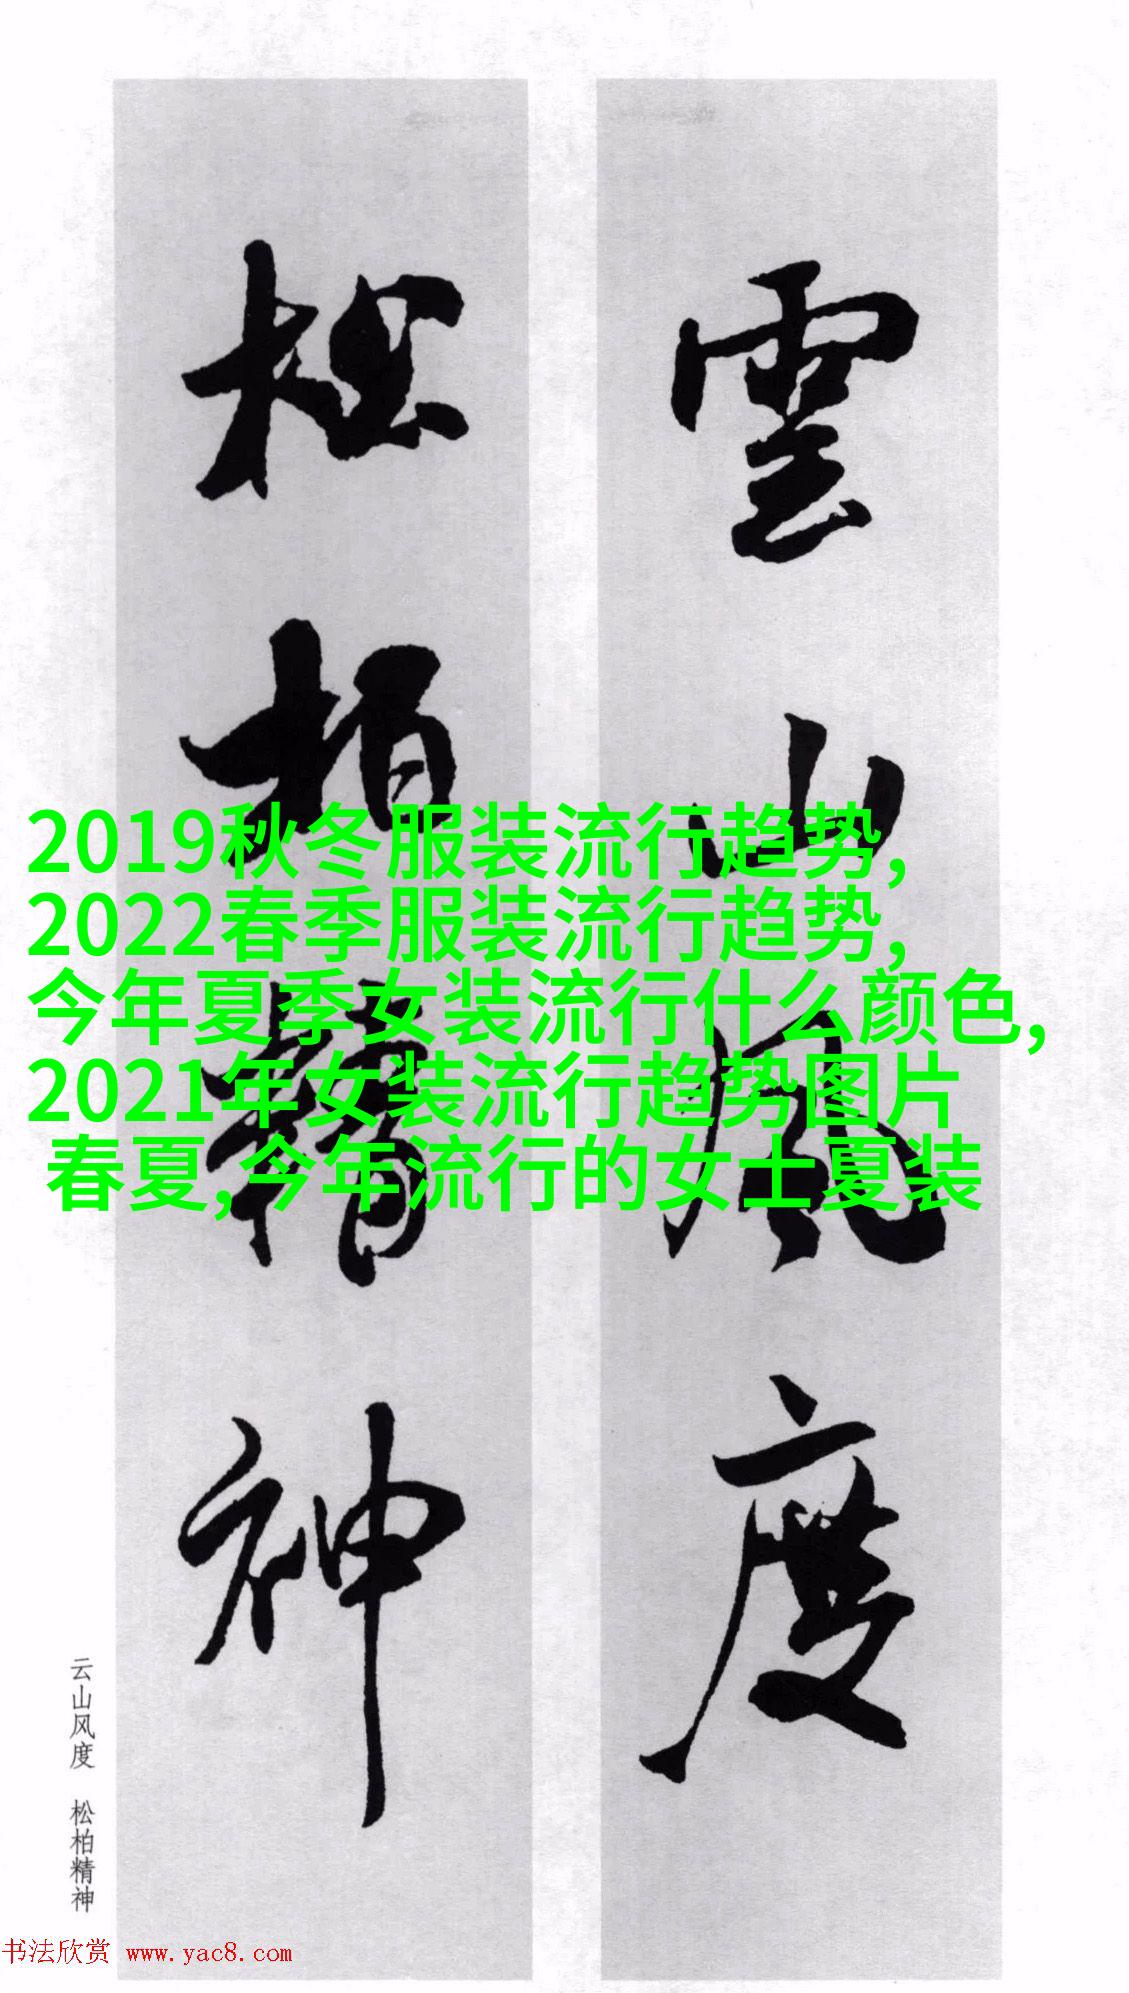 雲山風度
松柏精神
2019秋冬服装流行趋势,
2022春季服装流行趋势,
今年夏季女装流行什么颜色,
2021年女装流行趋势图片
春夏,今年流行的女士夏装
云山风度 松柏精神
书法欣赏 www.yac8.com